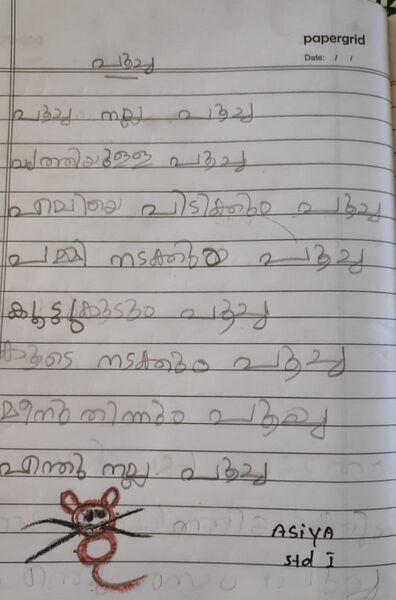 papergrid
Date: / /
പൂച്ച
പൂച്ച നല്ല പൂച്ച
വൃത്തിയുള്ള പൂച്ച
എലിയെ പിടിക്കും പൂച്ച
പമ്മി നടക്കും പൂച്ച
കൂട്ടുകൂടും പൂച്ച
കൂടെ നടക്കും പൂച്ച
മീനു തിന്നും പൂച്ച
എന്തു നല്ല പൂച്ച
ASiYA
std I